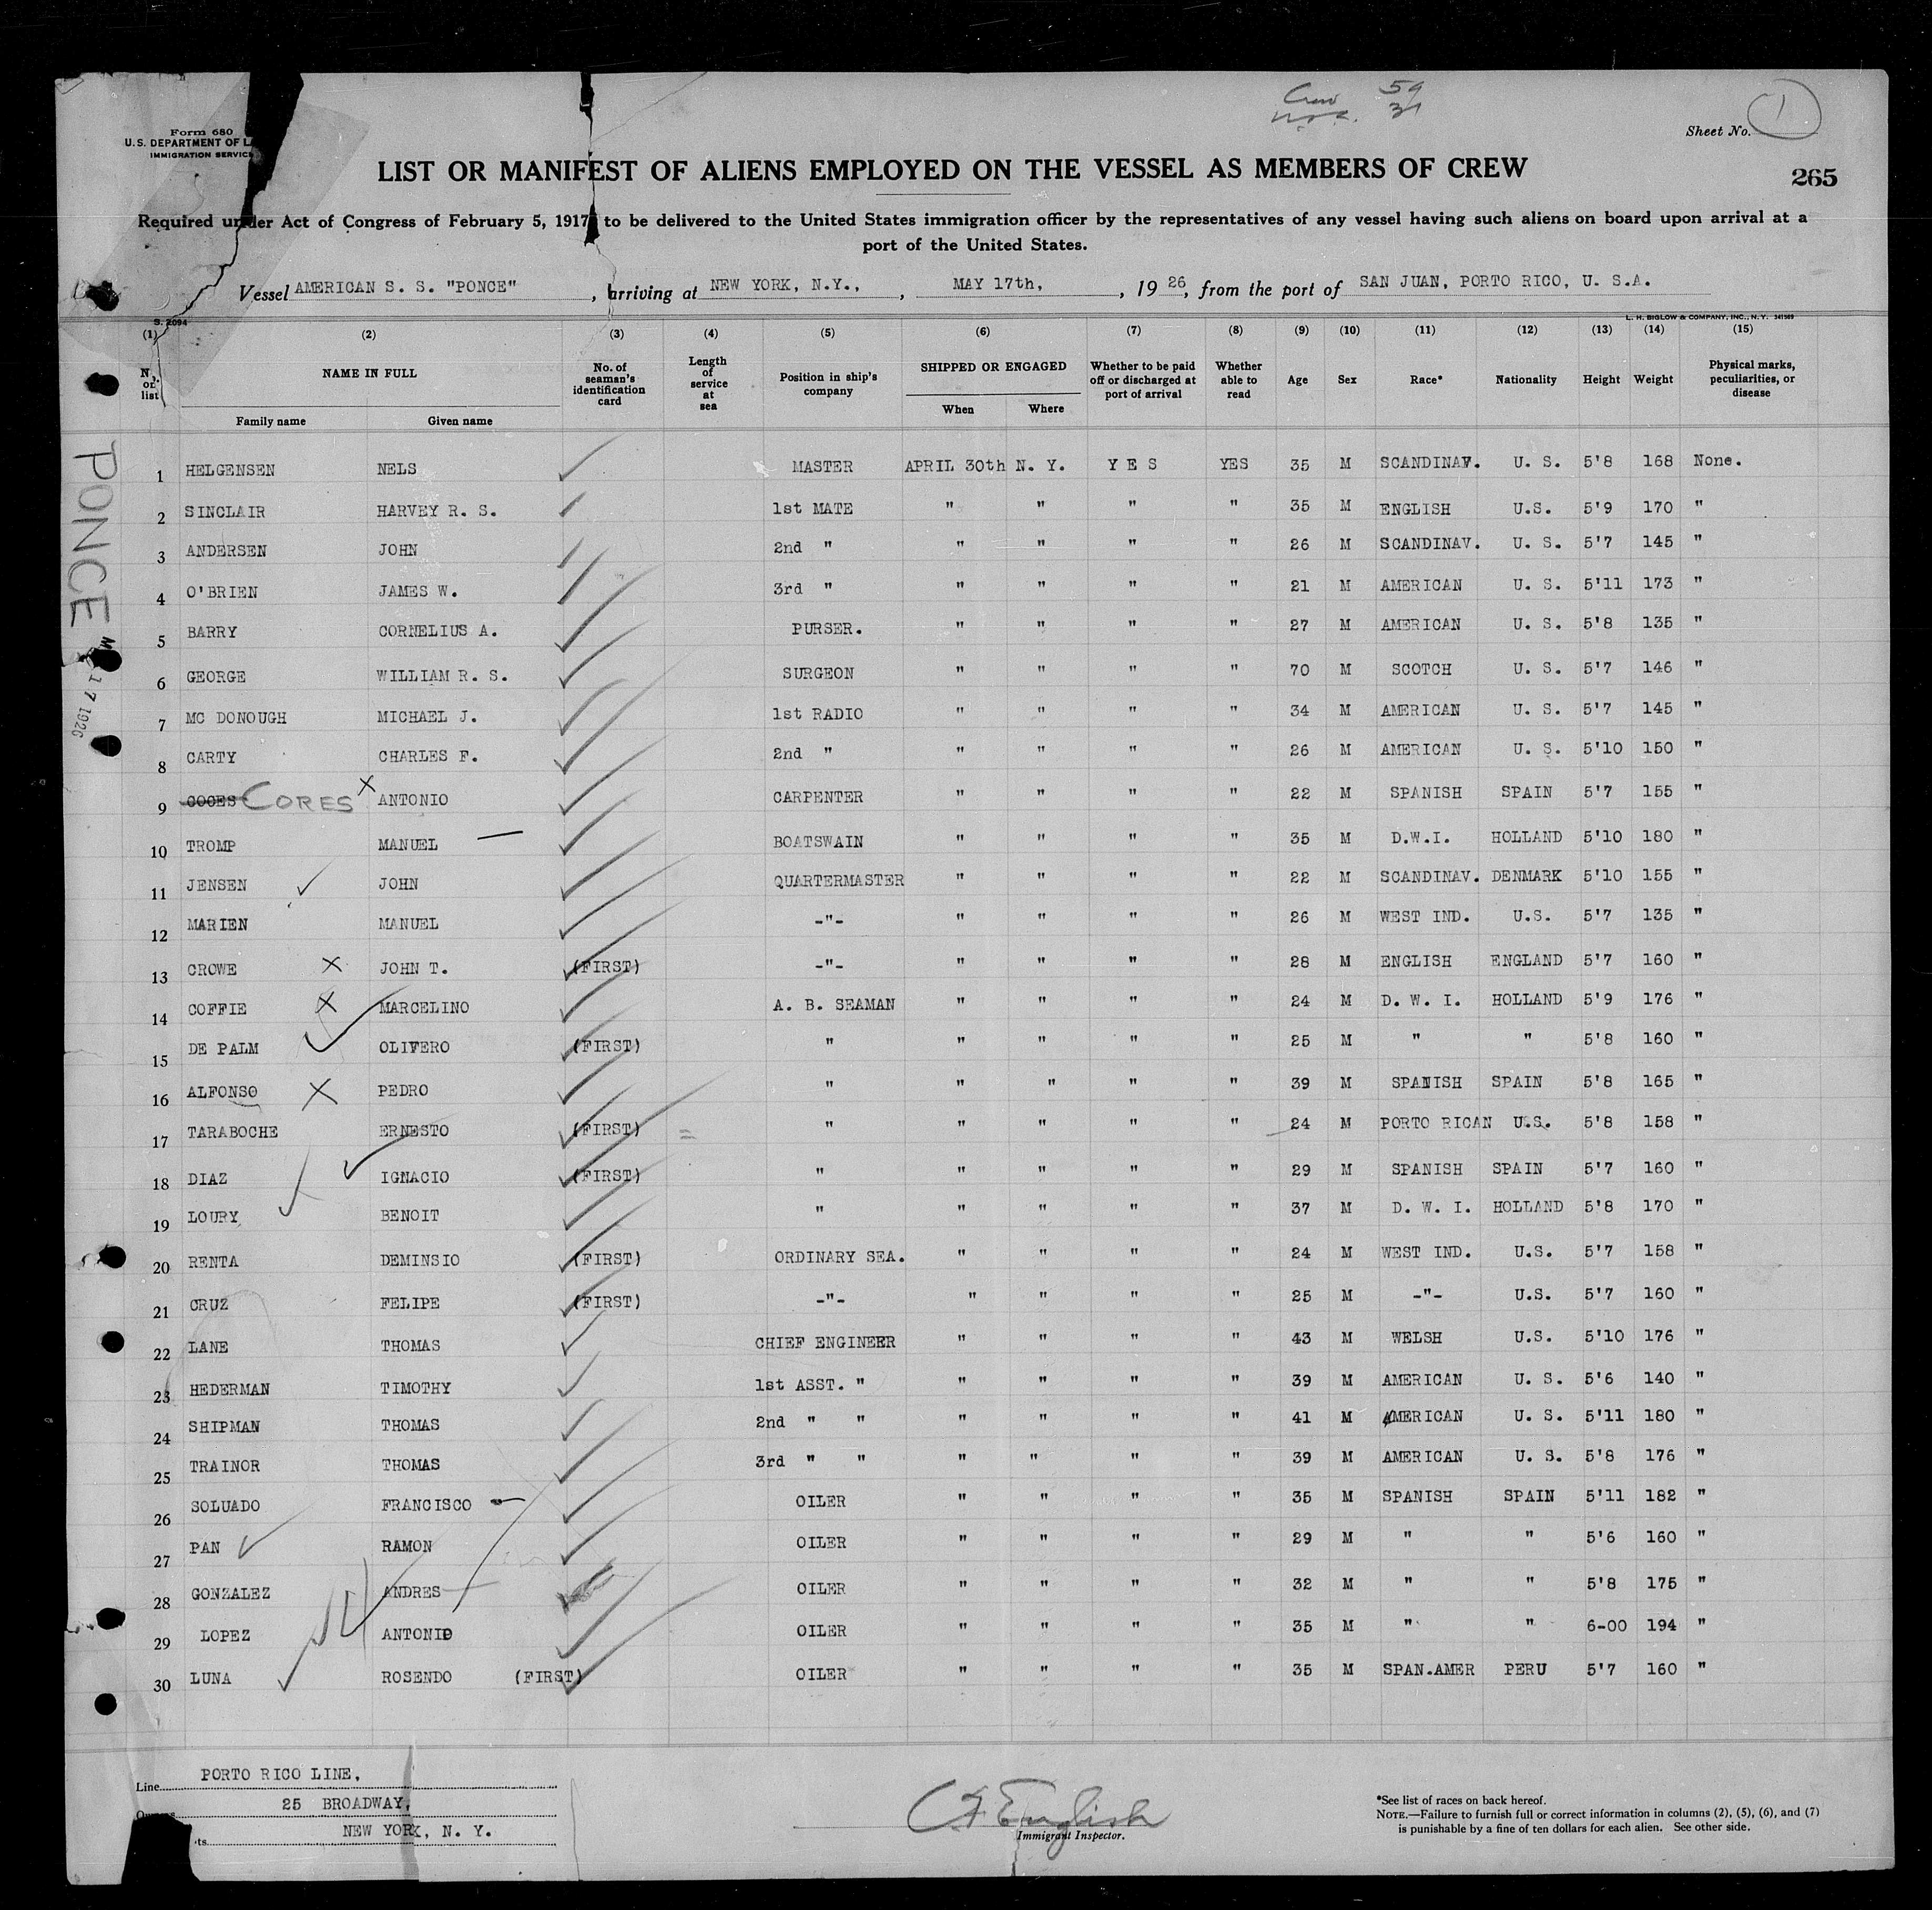 Crew 59
Sheet No. 1
Form 680
U.S. DEPARTMENT OF
IMMIGRATION SERVICE
LIST OR MANIFEST OF ALIENS EMPLOYED ON THE VESSEL AS MEMBERS OF CREW
265
Required under Act of Congress of February 5, 1917, to be delivered to the United States immigration officer by the representatives of any vessel having such aliens on board upon arrival at a
port of the United States.
Vessel AMERICAN S. S. "PONCE", arriving at NEW YORK, N.Y., , MAY 17th, , 19 26, from the port of SAN JUAN, PORTO RICO, U. S.A.
S. 2094 L. H. BIGLOW & COMPANY, INC., N. Y. 341569
(1) (2) (3) (4) (5) (6) (7) (8) (9) (10) (11) (12) (13) (14) (15)
No. on list NAME IN FULL Family name Given name No. of seaman's identification card Length of service at sea Position in ship's company SHIPPED OR ENGAGED When Where Whether to be paid off or discharged at port of arrival Whether able to read Age Sex Race* Nationality Height Weight Physical marks, peculiarities, or disease
PONCE
MAY 17 1926
1 HELGENSEN NELS MASTER APRIL 30th N. Y. Y E S YES 35 M SCANDINAV. U. S. 5'8 168 None.
2 SINCLAIR HARVEY R. S. 1st MATE " " " " 35 M ENGLISH U.S. 5'9 170 "
3 ANDERSEN JOHN 2nd " " " " " 26 M SCANDINAV. U. S. 5'7 145 "
4 O'BRIEN JAMES W. 3rd " " " " " 21 M AMERICAN U. S. 5'11 173 "
5 BARRY CORNELIUS A. PURSER. " " " " 27 M AMERICAN U. S. 5'8 135 "
6 GEORGE WILLIAM R. S. SURGEON " " " " 70 M SCOTCH U. S. 5'7 146 "
7 MC DONOUGH MICHAEL J. 1st RADIO " " " " 34 M AMERICAN U. S. 5'7 145 "
8 CARTY CHARLES F. 2nd " " " " " 26 M AMERICAN U. S. 5'10 150 "
9 COCES CORES X ANTONIO CARPENTER " " " " 22 M SPANISH SPAIN 5'7 155 "
10 TROMP MANUEL BOATSWAIN " " " " 35 M D.W.I. HOLLAND 5'10 180 "
11 JENSEN JOHN QUARTERMASTER " " " " 22 M SCANDINAV. DENMARK 5'10 155 "
12 MARIEN MANUEL -"- " " " " 26 M WEST IND. U.S. 5'7 135 "
13 CROWE X JOHN T. (FIRST) -"- " " " " 28 M ENGLISH ENGLAND 5'7 160 "
14 COFFIE X MARCELINO A. B. SEAMAN " " " " 24 M D. W. I. HOLLAND 5'9 176 "
15 DE PALM OLIVERO (FIRST) " " " " " 25 M " " 5'8 160 "
16 ALFONSO X PEDRO " " " " " 39 M SPANISH SPAIN 5'8 165 "
17 TARABOCHE ERNESTO (FIRST) " " " " " 24 M PORTO RICAN U.S. 5'8 158 "
18 DIAZ IGNACIO (FIRST) " " " " " 29 M SPANISH SPAIN 5'7 160 "
19 LOURY BENOIT " " " " " 37 M D. W. I. HOLLAND 5'8 170 "
20 RENTA DEMINSIO (FIRST) ORDINARY SEA. " " " " 24 M WEST IND. U.S. 5'7 158 "
21 CRUZ FELIPE (FIRST) -"- " " " " 25 M -"- U.S. 5'7 160 "
22 LANE THOMAS CHIEF ENGINEER " " " " 43 M WELSH U.S. 5'10 176 "
23 HEDERMAN TIMOTHY 1st ASST. " " " " " 39 M AMERICAN U. S. 5'6 140 "
24 SHIPMAN THOMAS 2nd " " " " " " 41 M AMERICAN U. S. 5'11 180 "
25 TRAINOR THOMAS 3rd " " " " " " 39 M AMERICAN U. S. 5'8 176 "
26 SOLUADO FRANCISCO OILER " " " " 35 M SPANISH SPAIN 5'11 182 "
27 PAN RAMON OILER " " " " 29 M " " 5'6 160 "
28 GONZALEZ ANDRES OILER " " " " 32 M " " 5'8 175 "
29 LOPEZ ANTONIO OILER " " " " 35 M " " 6-00 194 "
30 LUNA ROSENDO (FIRST) OILER " " " " 35 M SPAN.AMER PERU 5'7 160 "
Line PORTO RICO LINE,
25 BROADWAY,
NEW YORK, N. Y.
C F English
Immigrant Inspector.
*See list of races on back hereof.
NOTE.—Failure to furnish full or correct information in columns (2), (5), (6), and (7)
is punishable by a fine of ten dollars for each alien. See other side.